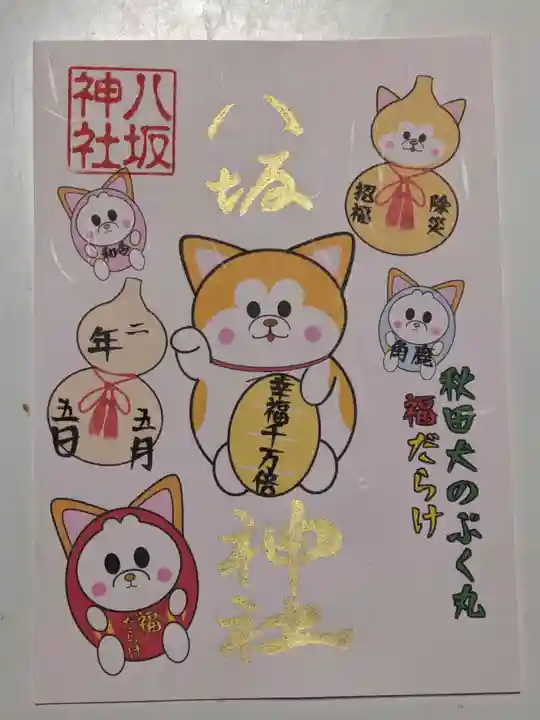 八坂
神社
八坂
神社
除災
招福
令和
二
年
五月
五日
角鹿
幸福千万倍
秋田犬のぷく丸
福だらけ
福
だらけ